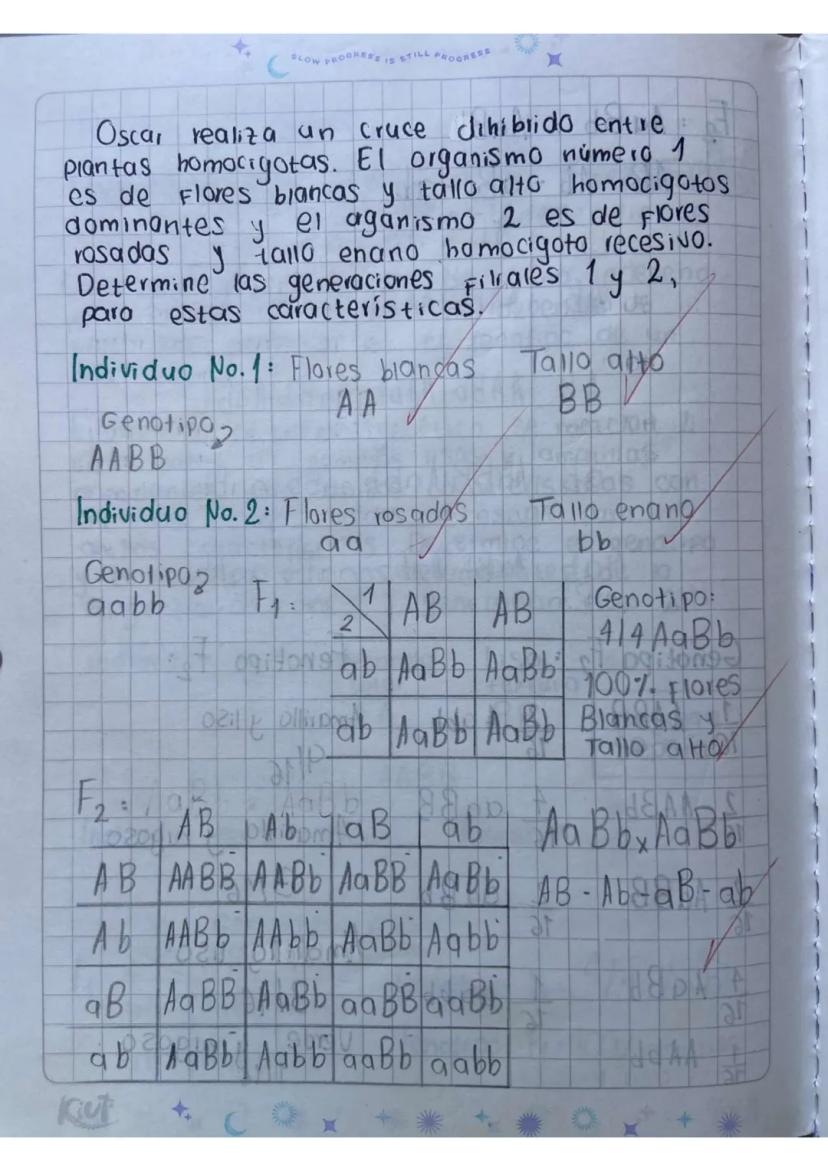 SLOW PROGRESS IS STILL PROGRESS
Oscar realiza un cruce dihibrido entre
plantas homocigotas. El organismo número 1
es de Flores blancas y tallo alto homocigotos
dominantes y el oganismo 2 es de Flores
rosadas y tallo enano homocigoto recesivo.
Determine las generaciones Filiales 1 y 2,
para estas características.
Individuo No. 1: Flores blancas Tallo alto
AA BB
Genotipo
AABB
Individuo No. 2: Flores rosadas Tallo enano
aa bb
Genotipo
aabb
F1: 1 AB AB
2
ab AaBb AaBb
ab AaBb AaBb
Genotipo:
4/4 AaBb
100% Flores
Blancas y
Tallo alto
F2:
AB Ab aB ab
AB AABB AABb AaBB AaBb
Ab AABb AAbb AaBb Aabb
aB AaBB AaBb aaBB aaBb
ab AaBb Aabb aaBb aabb
AaBb x AaBb
AB - Ab - aB - ab
Kiut